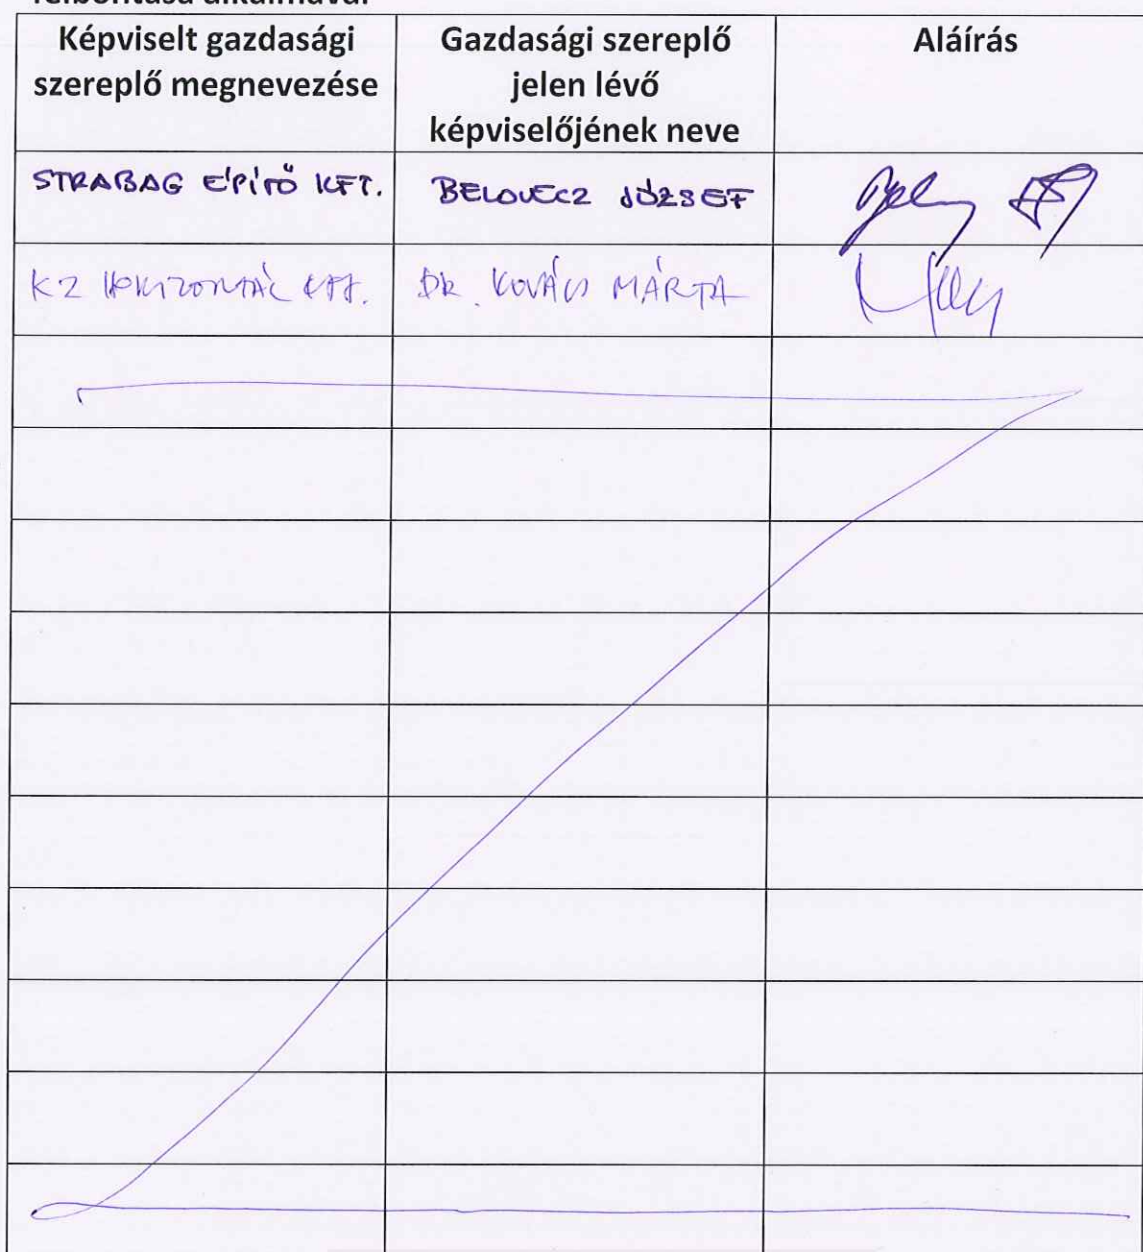 felbontása alkalmával
Képviselt gazdasági
szereplő megnevezése
Gazdasági szereplő
jelen lévő
képviselőjének neve
Aláírás
STRABAG ÉPÍTŐ KFT.
BELOVECZ JÓZSEF
KZ HORIZONTÁL KFT.
DR. KOVÁCS MÁRTA